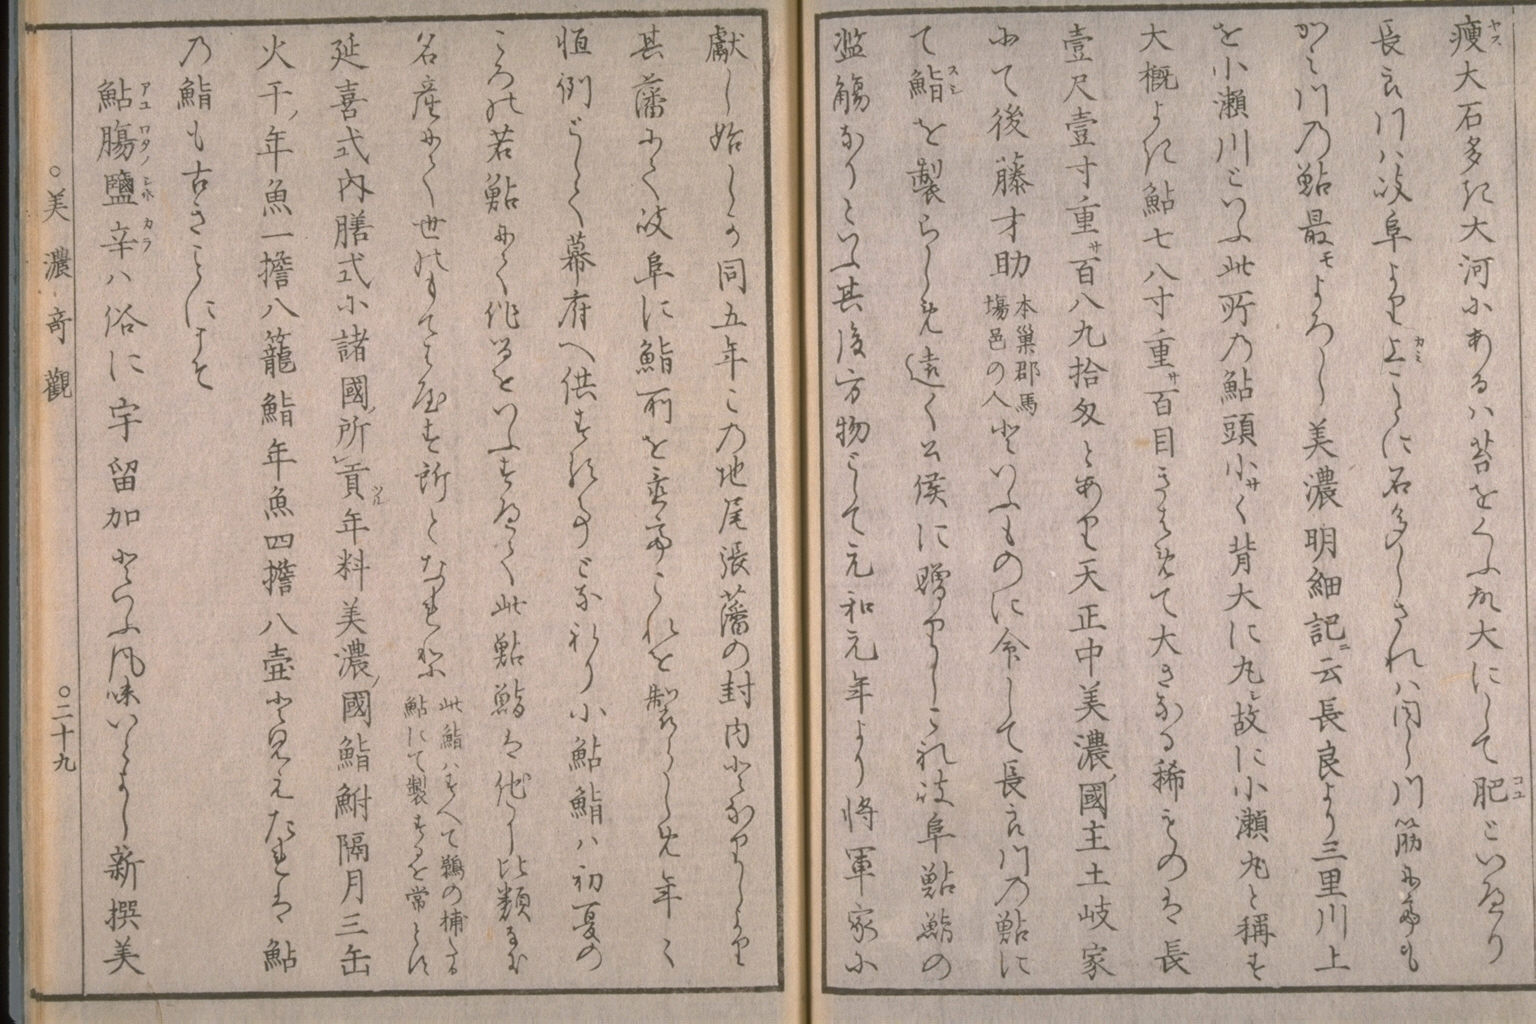 瘦大石多き大河にあるハ苔をくふ故大にして肥といへり
長良川ハ岐阜より上ことに石多しされハ同し川筋にても
かみ川乃鮎最よろし美濃明細記云長良より三里川上
を小瀬川といふ此所乃鮎頭小く背大に丸シ故に小瀬丸と稱す
大概よき鮎七八寸重サ百目きはめて大きなる稀ものは長
壹尺壹寸重サ百八九拾匁とあり天正中美濃ノ國主土岐家
にて後藤才助本巣郡馬塲邑の人といふものに命して長良川乃鮎に
て鮨を製らしめ遠く公侯に贈りしこれ岐阜鮎鮨の
濫觴なりといふ其後方物として元和元年より將軍家に
獻し始しか同五年この地尾張藩の封内となりしより
其藩にて岐阜に鮨所を置てこれを製らしめ年々
恒例として幕府へ供するのこととなれり小鮎鮨ハ初夏の
ころの若鮎にて作るをいふすへて此鮎鮨は他に比類なき
名産にて世のもてはやす所となれり此鮨ハすへて鵜の捕たる鮎にて製するを常とす
延喜式内膳式に諸國ノ所貢年料美濃ノ國鮨鮒隔月三缶
火干ノ年魚一擔八籠鮨年魚四擔八壺と見えたれは鮎
乃鮨も古きことにこそ
鮎膓鹽辛ハ俗に宇留加といふ風味いとよし新撰美
○美濃奇觀
○二十九